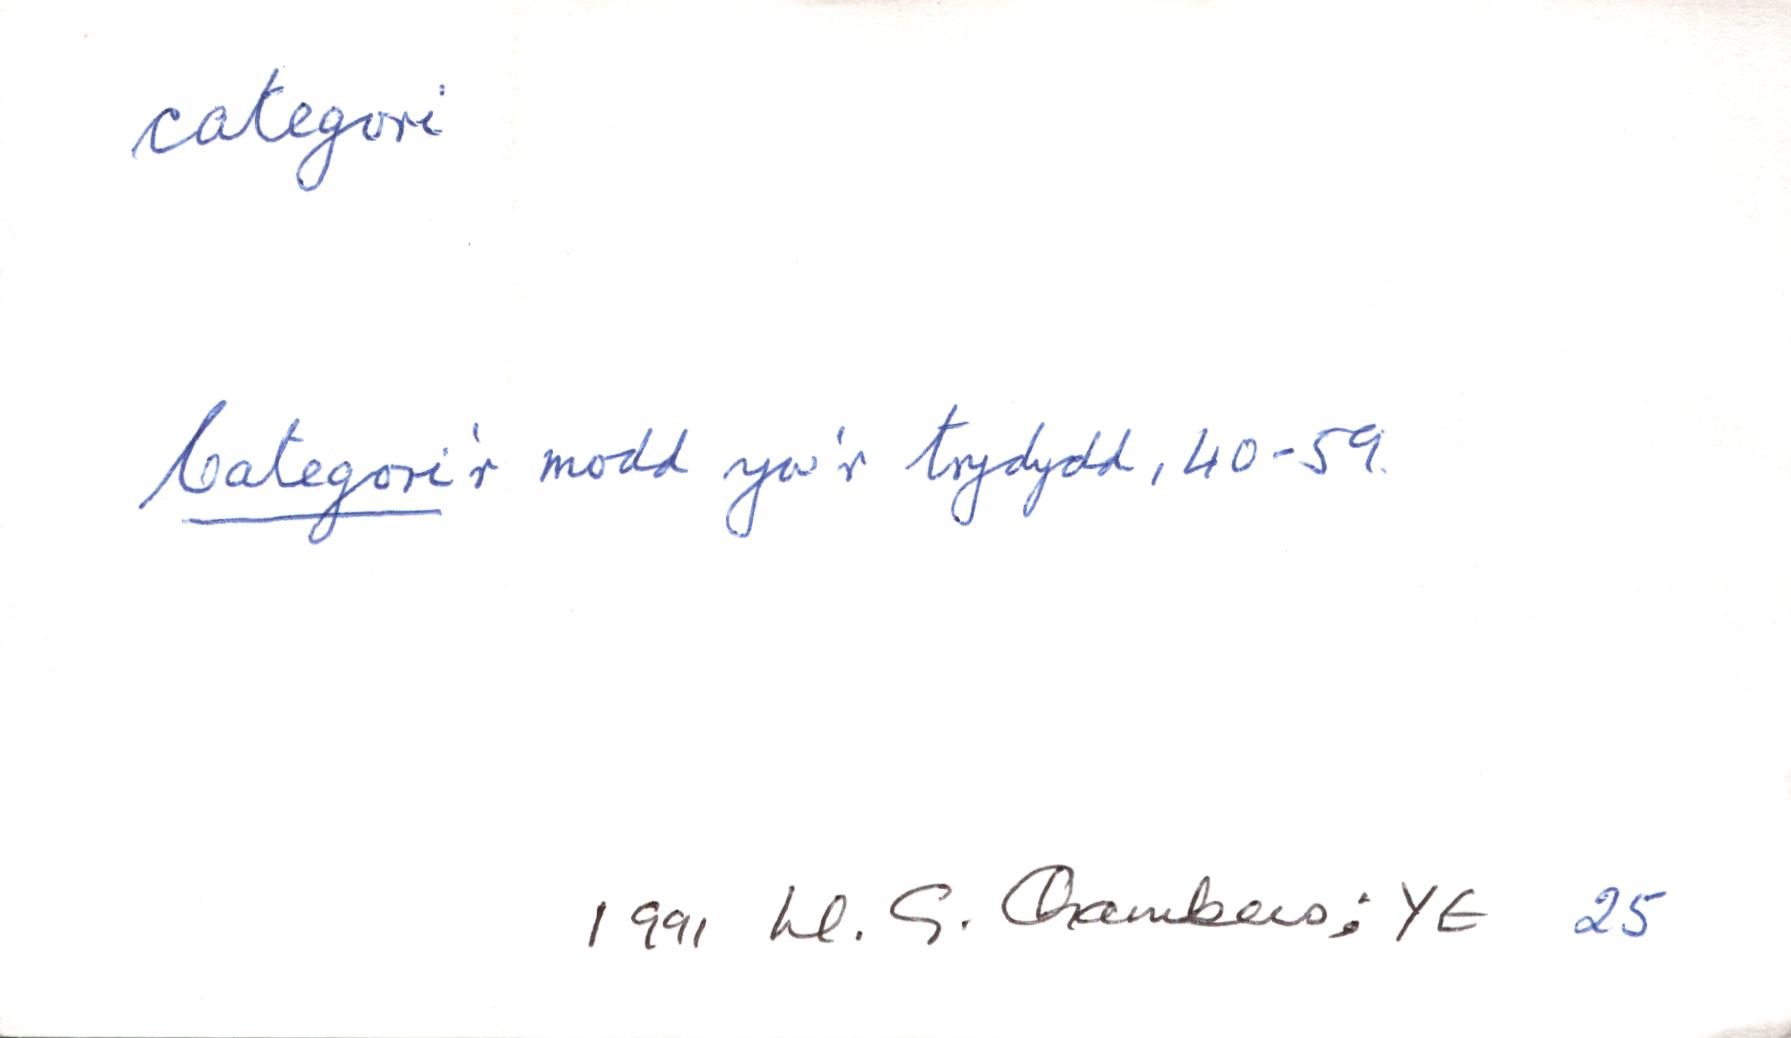 categori
Categori'r modd yw'r trydydd, 40-59.
1991 W. G. Chambers; YE 25